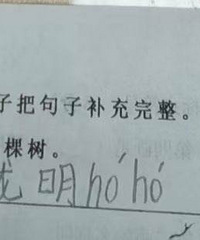 子把句子补充完整。
棵树。
成明hóhó